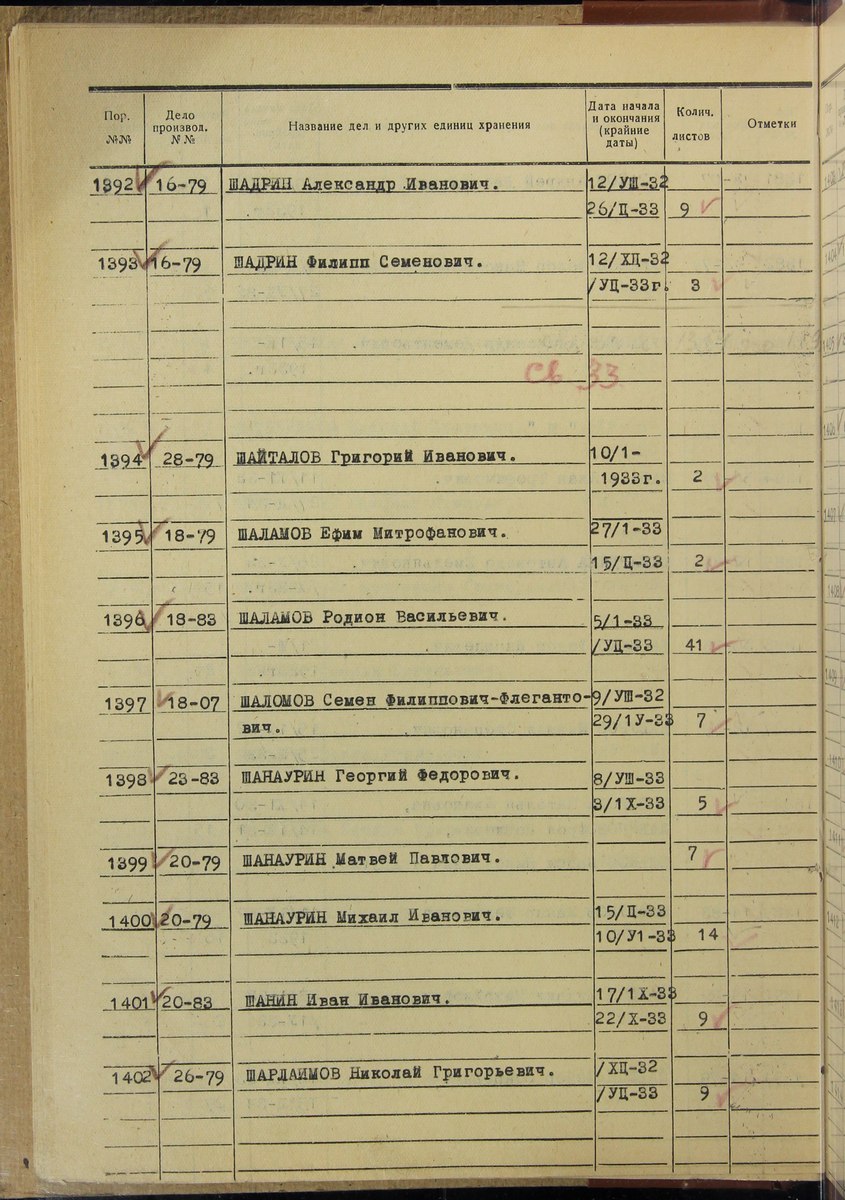 Пор. №№ Дело производ. №№ Название дел и других единиц хранения Дата начала и окончания (крайние даты) Колич. листов Отметки
1392 16-79 ШАДРИН Александр Иванович. 12/УШ-32
26/Ц-33 9
1393 16-79 ШАДРИН Филипп Семенович. 12/ХЦ-32
/УЦ-33г. 3
св 33
1394 28-79 ШАЙТАЛОВ Григорий Иванович. 10/1-
1933г. 2
1395 18-79 ШАЛАМОВ Ефим Митрофанович. 27/1-33
15/Ц-33 2
1396 18-83 ШАЛАМОВ Родион Васильевич. 5/1-33
/УЦ-33 41
1397 18-07 ШАЛОМОВ Семен Филиппович-Флеганто- 9/УШ-32
вич. 29/1У-33 7
1398 23-83 ШАНАУРИН Георгий Федорович. 8/УШ-33
3/1Х-33 5
1399 20-79 ШАНАУРИН Матвей Павлович. 7
1400 20-79 ШАНАУРИН Михаил Иванович. 15/Ц-33
10/У1-33 14
1401 20-83 ШАНИН Иван Иванович. 17/1Х-33
22/Х-33 9
1402 26-79 ШАРЛАИМОВ Николай Григорьевич. /ХЦ-32
/УЦ-33 9